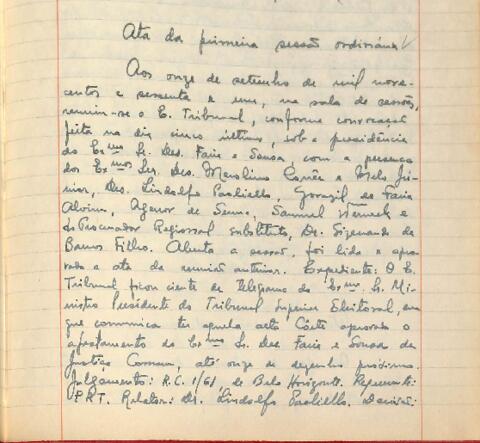 Ata da primeira sessão ordinária
Aos onze de setembro de mil nove-
centos e sessenta e um, na sala de sessões,
reuniu-se o E. Tribunal, conforme convocação
feita no dia cinco último, sob a presidência
do Exmo Sr. Des. Faria e Sousa, com a presença
dos Exmos Srs. Des. Merolino Corrêa e Melo Jú-
nior, Drs. Lindolfo Paoliello, Gorazil de Faria
Alvim, Agenor de Senna, Samuel Werneck e
do Procurador Regional substituto, Dr. Sizenando de
Barros Filho. Aberta a sessão, foi lida e apro-
vada a ata da reunião anterior. Expediente: O E.
Tribunal ficou ciente de telegrama do Exmo. Sr. Mi-
nistro Presidente do Tribunal Superior Eleitoral, em
que comunica ter aquela alta Côrte aprovado o
afastamento do Exmo Sr. Des. Faria e Sousa da
Justiça Comum, até onze de dezembro próximo.
Julgamento: R.C. 1/61, de Belo Horizonte. Requerente:
P.R.T. Relator: Dr. Lindolfo Paoliello. Decisão: